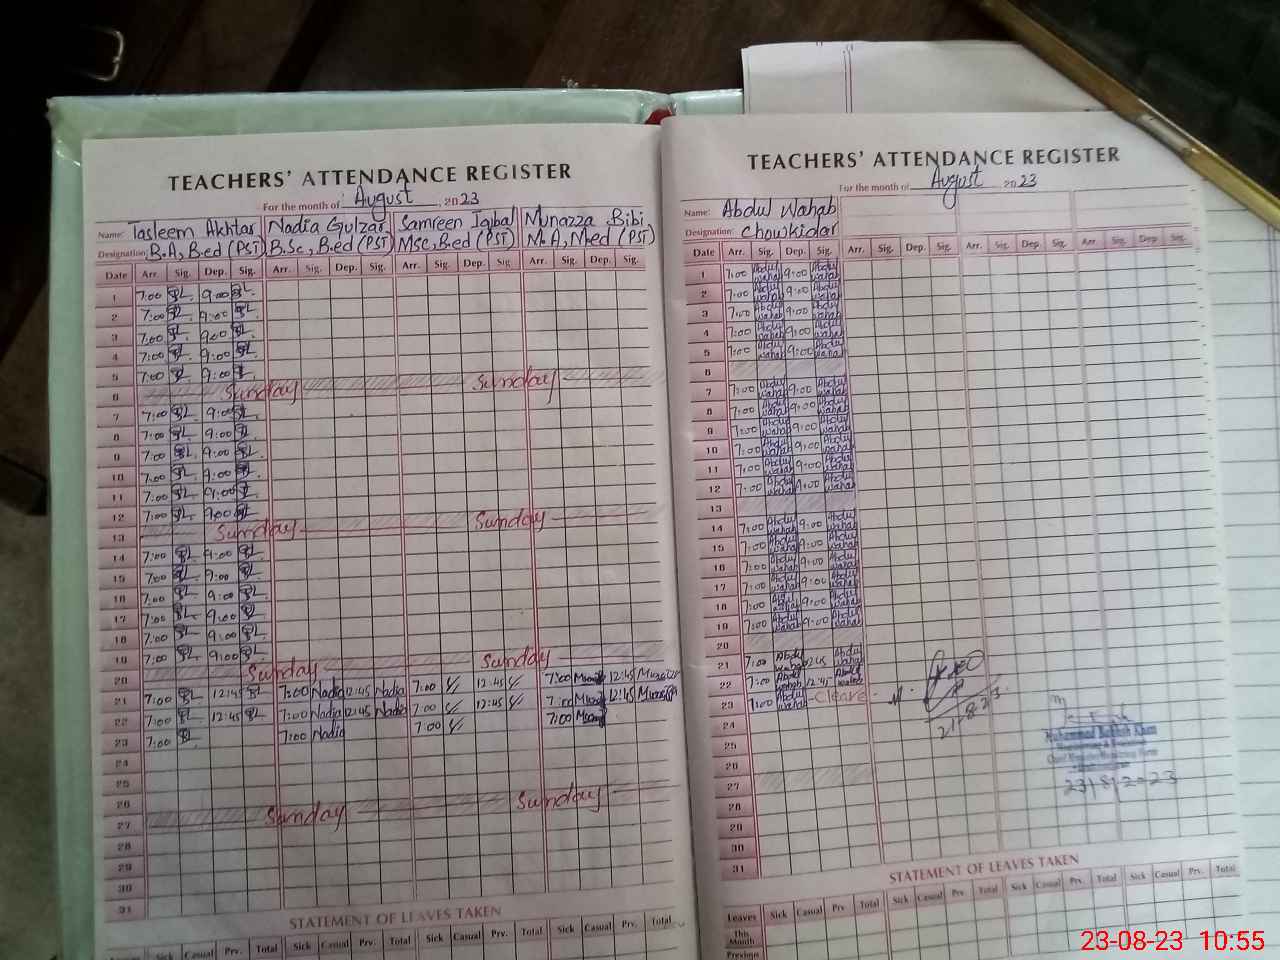 TEACHERS' ATTENDANCE REGISTER
For the month of August, 2023
Name: Tasleem Akhtar Nadia Gulzar Samreen Iqbal Munazza Bibi
Designation: B.A, B.ed (PST) B.Sc, B.ed (PST) MSc, B.ed (PST) M.A, M.ed (PST)
Date Arr. Sig. Dep. Sig. Arr. Sig. Dep. Sig. Arr. Sig. Dep. Sig. Arr. Sig. Dep. Sig.
1 7:00 9:00
2 7:00 9:00
3 7:00 9:00
4 7:00 9:00
5 7:00 9:00
6 Sunday Sunday
7 7:00 9:00
8 7:00 9:00
9 7:00 9:00
10 7:00 9:00
11 7:00 9:00
12 7:00 9:00
13 Sunday Sunday
14 7:00 9:00
15 7:00 9:00
16 7:00 9:00
17 7:00 9:00
18 7:00 9:00
19 7:00 9:00
20 Sunday Sunday
21 7:00 12:45 7:00 Nadia 12:45 Nadia 7:00 12:45 7:00 12:45
22 7:00 12:45 7:00 Nadia 12:45 Nadia 7:00 12:45 7:00 12:45
23 7:00 7:00 Nadia 7:00 7:00
24
25
26
27 Sunday Sunday
28
29
30
31
STATEMENT OF LEAVES TAKEN
Sick Casual Prv. Total Sick Casual Prv. Total Sick Casual Prv. Total Sick Casual Prv. Total
TEACHERS' ATTENDANCE REGISTER
For the month of August 2023
Name: Abdul Wahab
Designation: Chowkidar
Date Arr. Sig. Dep. Sig. Arr. Sig. Dep. Sig. Arr. Sig. Dep. Sig. Arr. Sig. Dep. Sig.
1 7:00 Abdul wahab 9:00 Abdul wahab
2 7:00 Abdul wahab 9:00 Abdul wahab
3 7:00 Abdul wahab 9:00 Abdul wahab
4 7:00 Abdul wahab 9:00 Abdul wahab
5 7:00 Abdul wahab 9:00 Abdul wahab
6
7 7:00 Abdul wahab 9:00 Abdul wahab
8 7:00 Abdul wahab 9:00 Abdul wahab
9 7:00 Abdul wahab 9:00 Abdul wahab
10 7:00 Abdul wahab 9:00 Abdul wahab
11 7:00 Abdul wahab 9:00 Abdul wahab
12 7:00 Abdul wahab 9:00 Abdul wahab
13
14 7:00 Abdul wahab 9:00 Abdul wahab
15 7:00 Abdul wahab 9:00 Abdul wahab
16 7:00 Abdul wahab 9:00 Abdul wahab
17 7:00 Abdul wahab 9:00 Abdul wahab
18 7:00 Abdul wahab 9:00 Abdul wahab
19 7:00 Abdul wahab 9:00 Abdul wahab
20
21 7:00 Abdul wahab 12:45 Abdul wahab
22 7:00 Abdul wahab 12:45 Abdul wahab
23 7:00 Abdul wahab
24
25
26
27
28
29
30
31
23/8/2023
STATEMENT OF LEAVES TAKEN
Leaves Sick Casual Prv. Total Sick Casual Prv. Total Sick Casual Prv. Total Sick Casual Prv. Total
This
Month
Previous
23-08-23 10:55